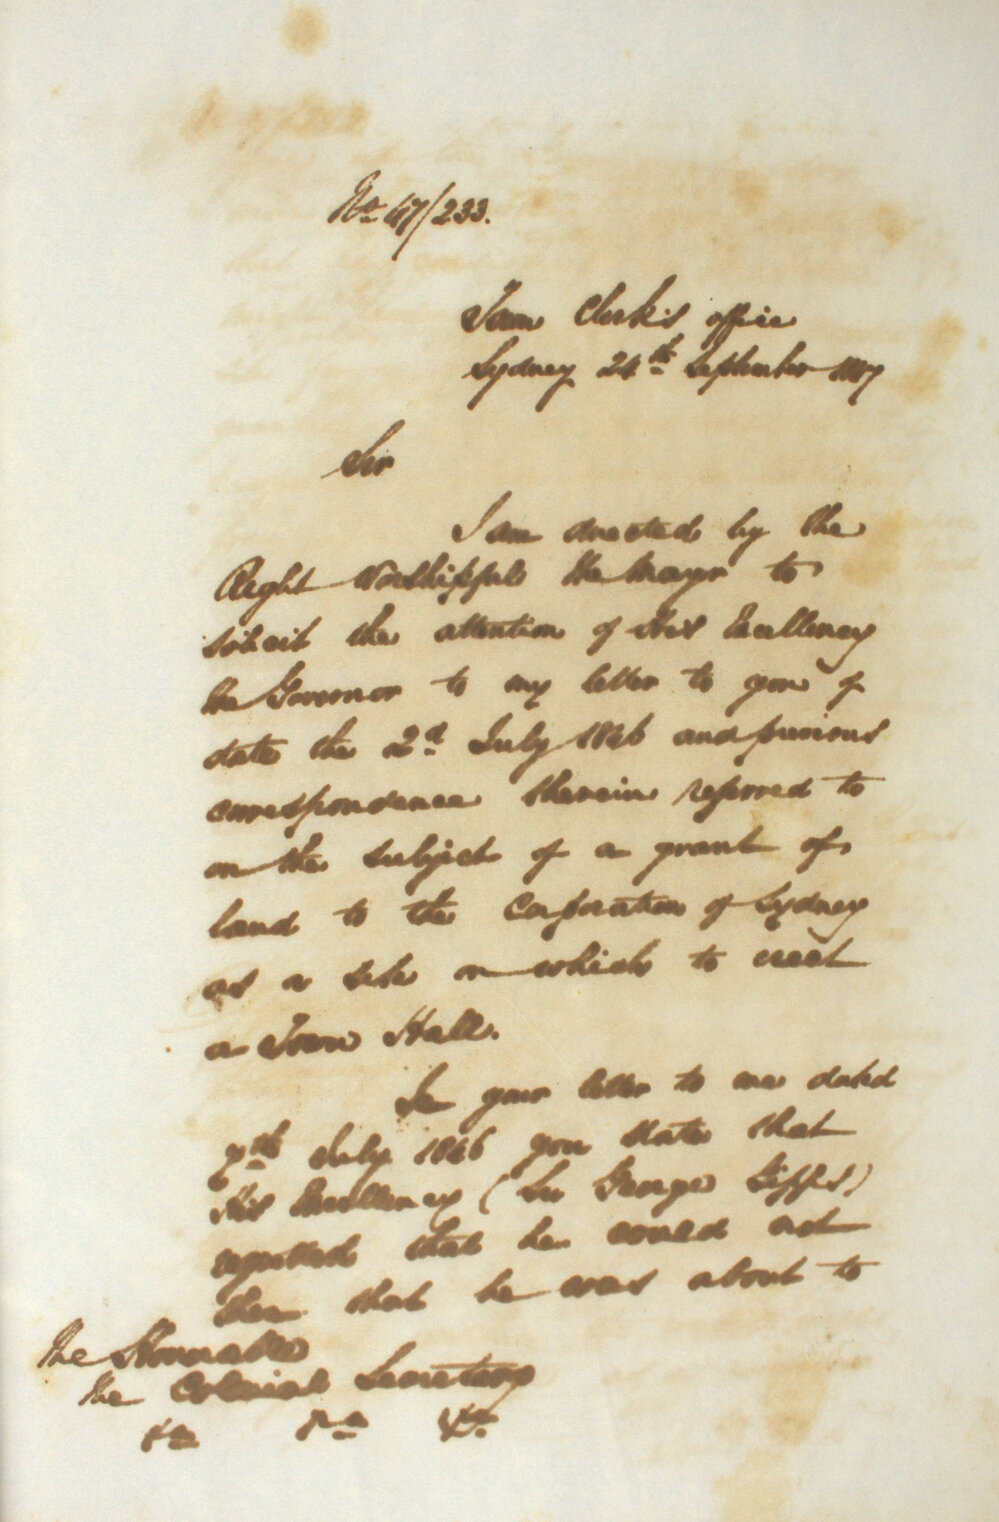 No. 47/233.
Town Clerk's office
Sydney 24th September 1847
Sir
I am directed by the
Right Worshipful the Mayor to
solicit the attention of His Excellency
the Governor to my letter to you of
date the 2d July 1846 and previous
correspondence therein referred to
on the subject of a grant of
land to the Corporation of Sydney
as a site on which to erect
a Town Hall.
In your letter to me dated
7th July 1846 you state that
His Excellency (Sir George Gipps)
regretted that he could not
then that he was about to
The Honorable
the Colonial Secretary
&a &a &a